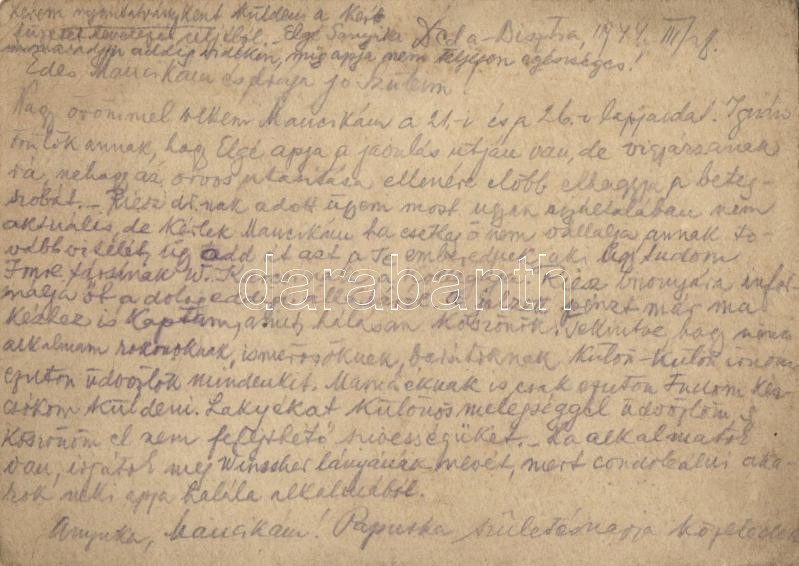 Kérem nyomtatványként küldeni a kért
füzetet levelezés céljából. Elgé Sanyika Deda-Bisztra, 1944. III/28.
maradjon addig vidéken, míg apja nem teljesen egészséges!
Édes Mancikám és drága jó szüleim!
Nagy örömmel vettem Mancikám a 21.-i és a 26.-i lapjaidat. Igazán
örülök annak, hogy Elgé apja a javulás útján van, de vigyázzanak
rá, nehogy az orvos utasítása ellenére előbb elhagyja a beteg-
szobát. - Riesz drnak adott ügyem most ugyan általában nem
aktuális, de kérlek Mancikám ha esetleg ő nem vállalja annak to-
vábbvitelét, úgy add át azt a aki úgy tudom
Imre társának W. K. Riesz bizonyára infor-
málja őt a dolog pénzt már ma
kézhez is kaptam, amit hálásan köszönök. Tekintve hogy nincs
alkalmam rokonoknak, ismerősöknek, barátoknak külön-külön írnom
ezúton üdvözlök mindenkit. Mamáéknak is csak ezúton tudom kéz-
csókom küldeni. Lakyékat különös melegséggel üdvözlöm s
köszönöm el nem felejthető szívességüket. - Ha alkalmatok
van, írjátok meg lányának nevét, mert condoleálni aka-
rok neki apja halála alkalmából.
Anyuka, Mancikám! Papuska születésnapja közeledik
darabanth